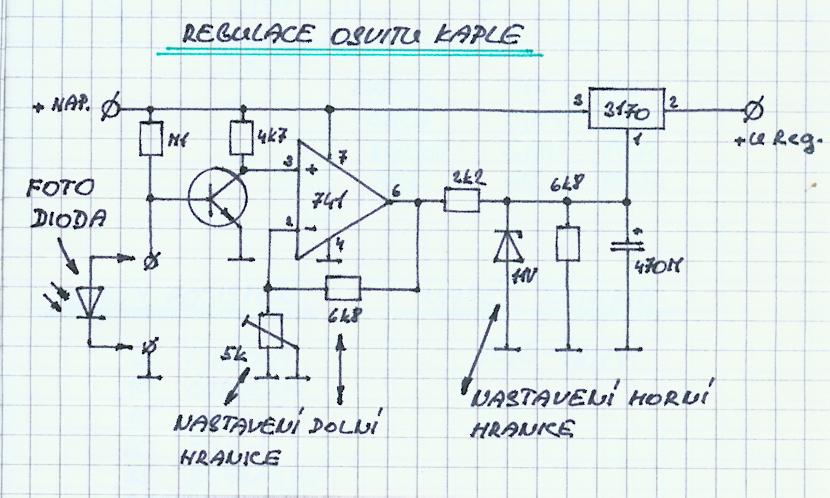 REGULACE OSVITU KAPLE
+ NAP.
M1
4k7
3
+
7
741
2
-
4
6
2k2
6k8
3
3170
2
1
+U Reg.
FOTO
DIODA
11V
+
470M
6k8
5k
NASTAVENÍ DOLNÍ
HRANICE
NASTAVENÍ HORNÍ
HRANICE